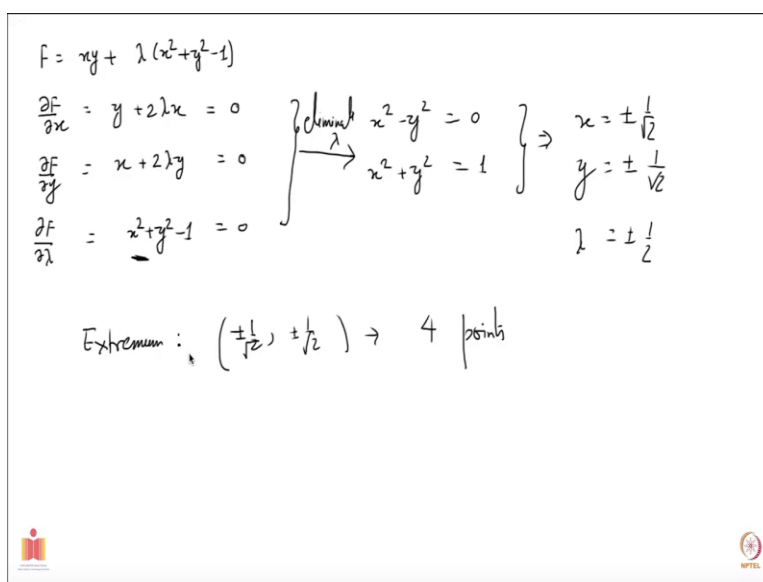 F = xy + λ(x²+y²-1)
∂F/∂x = y + 2λx = 0
∂F/∂y = x + 2λy = 0
∂F/∂λ = x²+y²-1 = 0
eliminate λ →
x² - y² = 0
x² + y² = 1
⇒ x = ± 1/√2
y = ± 1/√2
λ = ± 1/2
Extremum : (± 1/√2, ± 1/√2) → 4 points
NPTEL